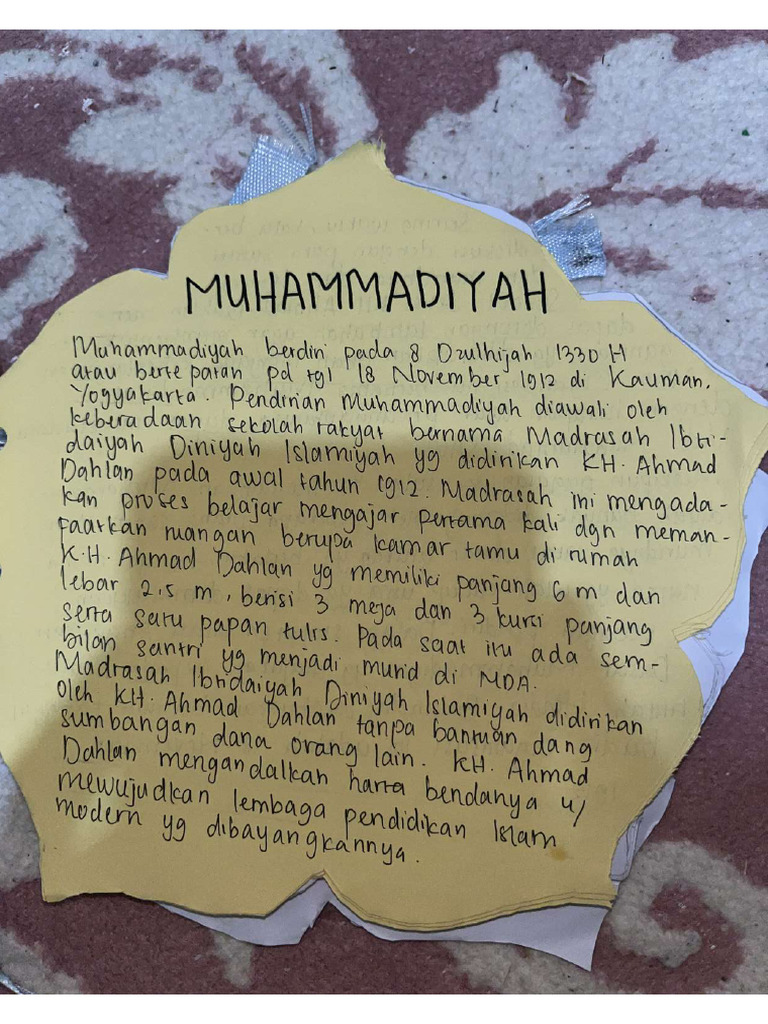 MUHAMMADIYAH
Muhammadiyah berdiri pada 8 Dzulhijah 1330 H
atau bertepatan pd tgl 18 November 1912 di Kauman,
Yogyakarta. Pendirian Muhammadiyah diawali oleh
keberadaan sekolah rakyat bernama Madrasah Ibti-
daiyah Diniyah Islamiyah yg didirikan KH. Ahmad
Dahlan pada awal tahun 1912. Madrasah ini mengada-
kan proses belajar mengajar pertama kali dgn meman-
faatkan ruangan berupa kamar tamu di rumah
K.H. Ahmad Dahlan yg memiliki panjang 6 m dan
lebar 2,5 m, berisi 3 meja dan 3 kursi panjang
serta satu papan tulis. Pada saat itu ada sem-
bilan santri yg menjadi murid di MDA.
Madrasah Ibtidaiyah Diniyah Islamiyah didirikan
oleh KH. Ahmad Dahlan tanpa bantuan dang
sumbangan dana orang lain. KH. Ahmad
Dahlan mengandalkan harta bendanya u/
mewujudkan lembaga pendidikan Islam
modern yg dibayangkannya.